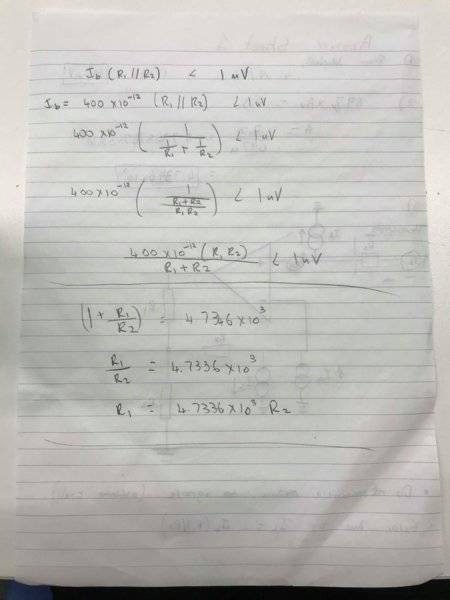 I_b (R₁ // R₂) < 1 uV
I_b = 400 × 10⁻¹² (R₁ // R₂) < 1 uV
400 × 10⁻¹² ( 1 / (1/R₁ + 1/R₂) ) < 1 uV
400 × 10⁻¹² ( 1 / ((R₁ + R₂) / (R₁ R₂)) ) < 1 uV
400 × 10⁻¹² (R₁ R₂) / (R₁ + R₂) < 1 uV
(1 + R₁/R₂) = 4.7346 × 10³
R₁/R₂ = 4.7336 × 10³
R₁ = 4.7336 × 10³ R₂